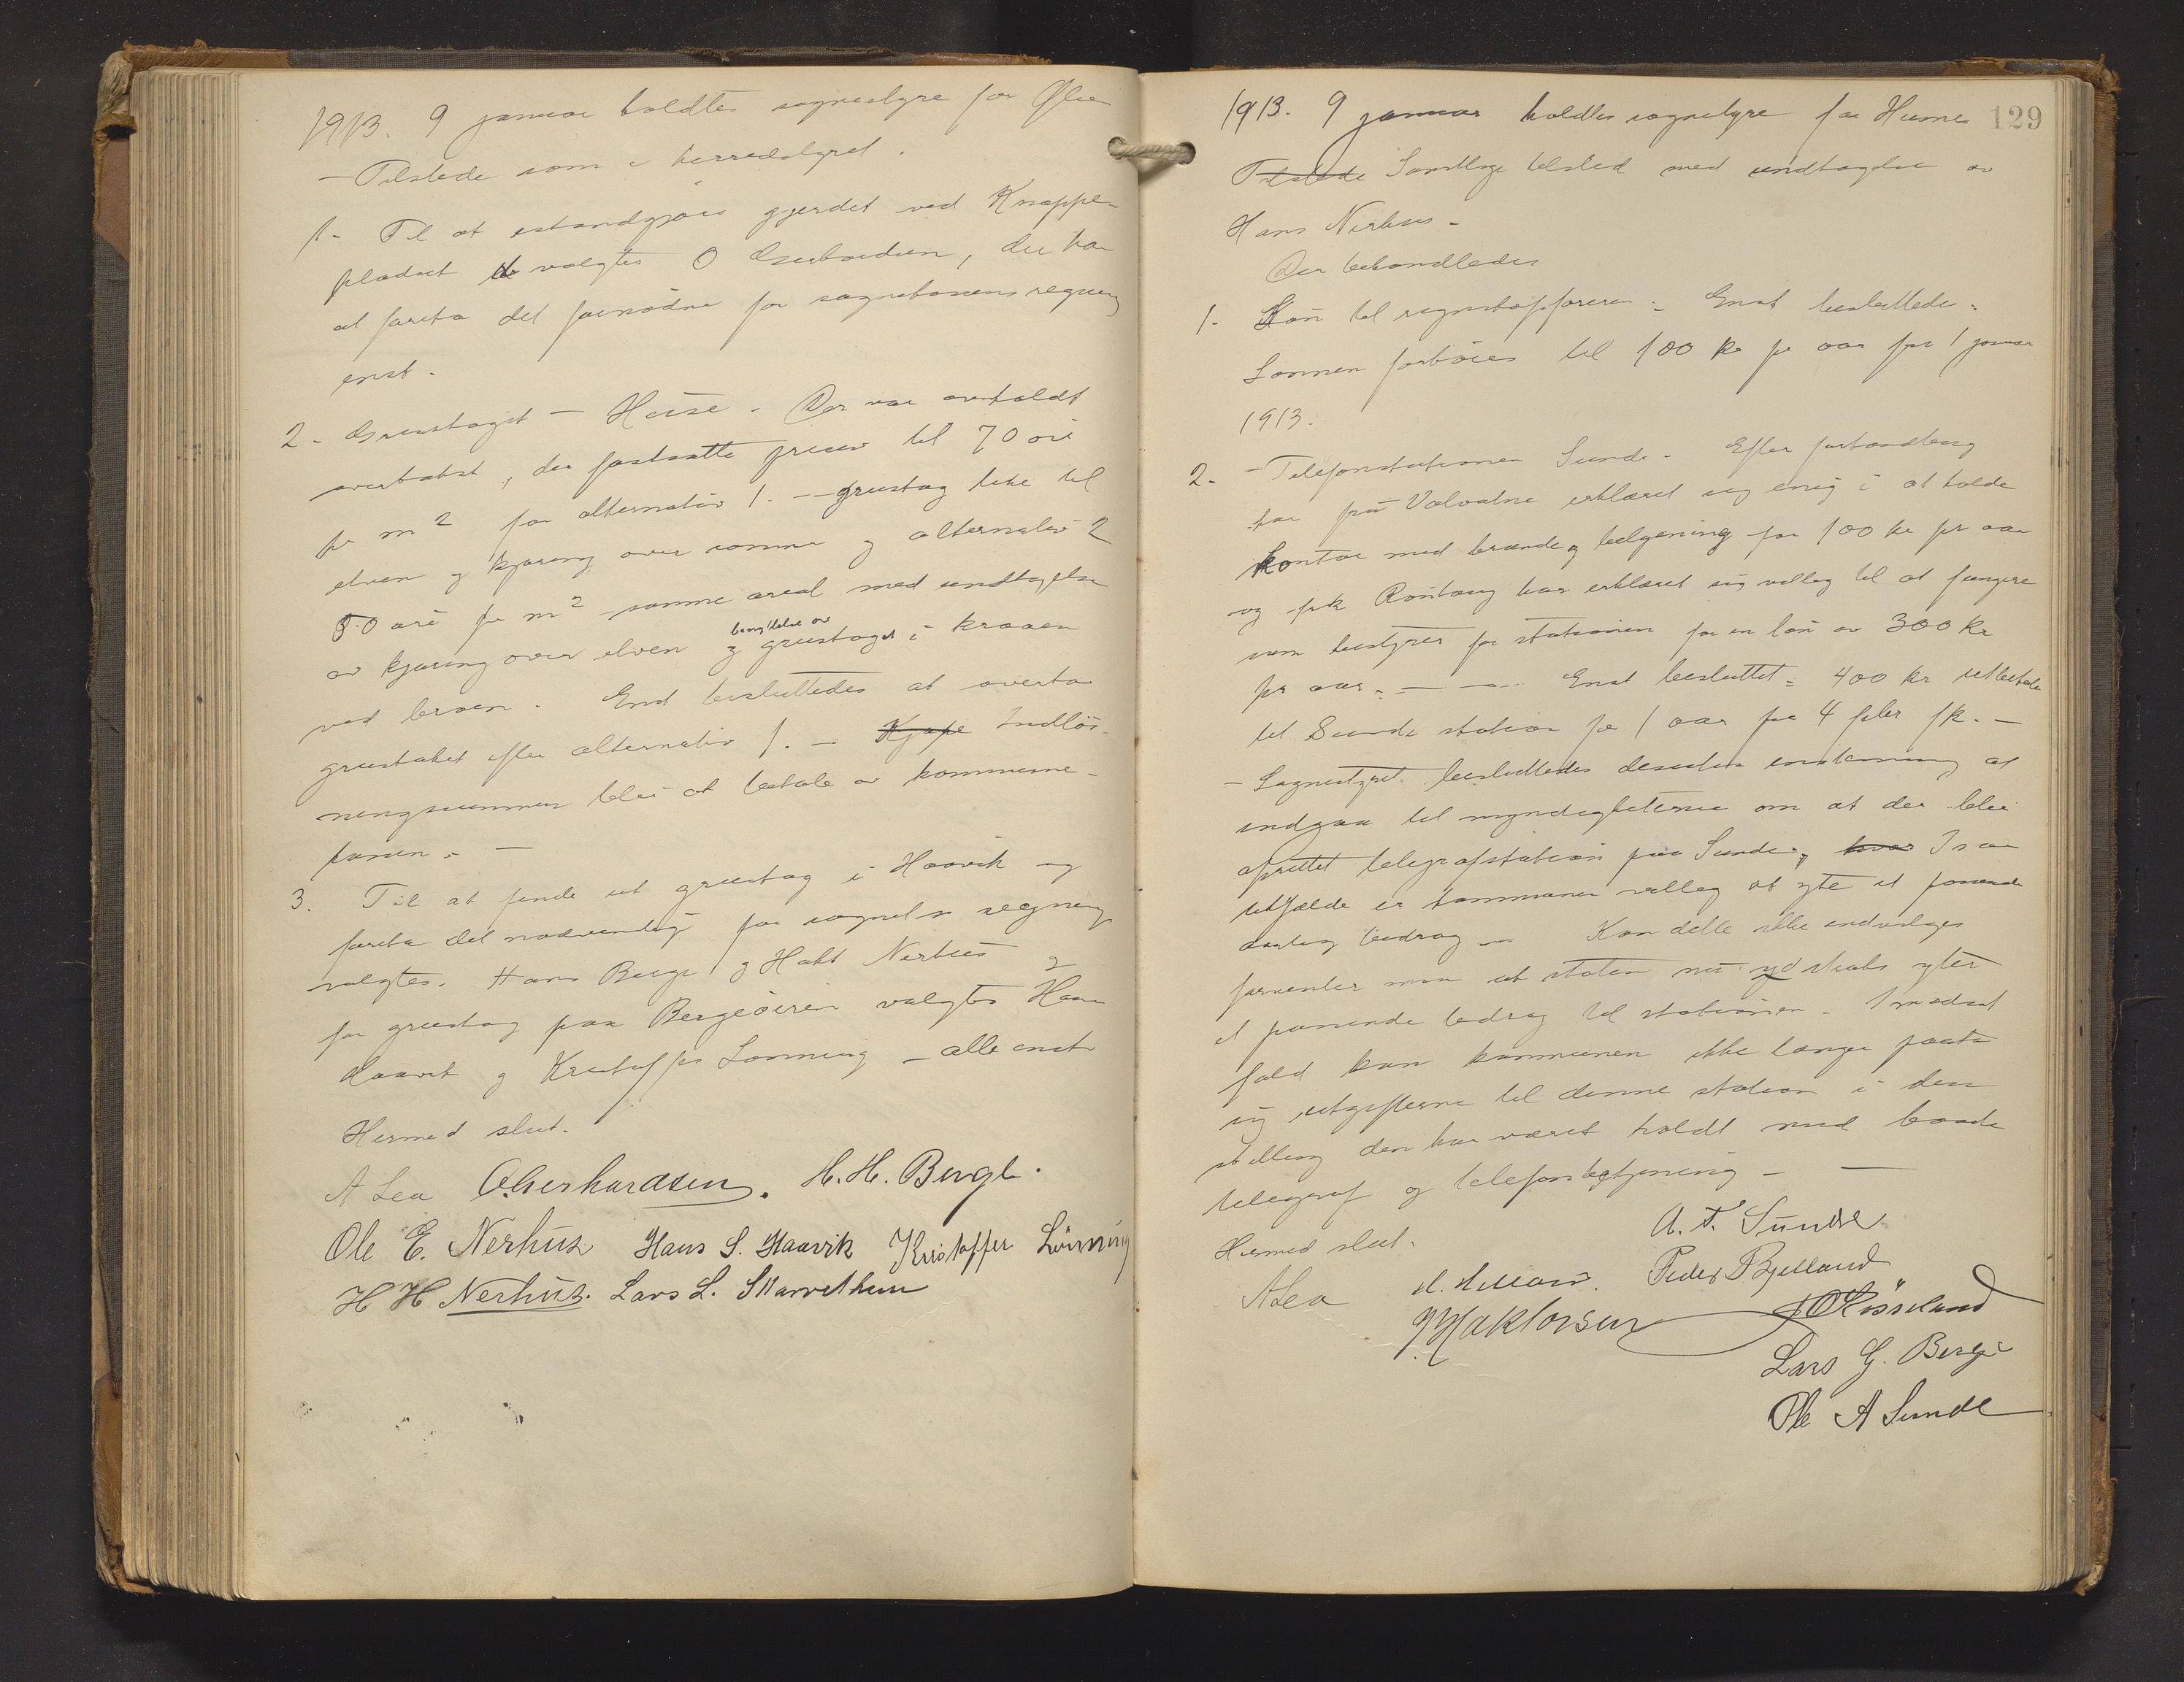 1913. 9 januar holdtes sognestyre for Ølen
- Tilstede som i herredstyret.
1- Til at istandgjøre gjerdet ved Knappe-
pladset valgtes O Gerhardsen, der har
at foreta det fornødne for sognekassens regning
enst.
2- Grustaget - Heise. Der var avholdt
overtakst, der fastsatte prisen til 70 øre
pr m² for alternativ 1. -- grustag like til
elven og kjøring over samme og alternativ 2
50 øre pr m² samme areal med undtagelse
benyttelse av
av kjøring over elven og grustaget i kroaen
ved broen. Enst besluttedes at overta
grustaket efter alternativ 1. - Kjøpe Indløs-
ningssummen blir at betale av kommune-
kassen. -
3. Til at finde ut grustag i Haavik og
foreta det nødvendig for sognets regning
valgtes. Hans Berge og Hakt Nerhus og
for grustag paa Bergeøiren valgtes Hans
Haavik og Kristoffer Lønning - alle enst
Hermed slut.
A Lea O. Gerhardsen. H. H. Berge.
Ole E. Nerhus Hans S. Haavik Kristoffer Lönning
H H Nerhus. Lars L. Skarvethun
1913. 9 januar holdtes sognestyre for 129
Tilstede Samtlige tilsted med undtagelse av
Hans Nerhus -
Der behandledes
1- Løn til regnskapsføreren - Enst besluttede.
Lønnen forhøies til 100 kr pr aar fra 1 januar
1913.
2- - Telefonstationen Sunde. Efter forhandling
har fru Valvatne erklæret sig enig i at holde
kontor med brænde og belysning for 100 kr pr aar
og frk har erklæret sig villig til at fungere
som bestyrer for stationen for en løn av 300 kr
pr aar. - - Enst besluttet = 400 kr utbetale
til Sunde station for 1 aar fra 4 febr fk. -
- Sognestyret besluttedes desuten enstemmig at
indgaa til myndigheterne om at der blir
oprettet telegrafstation paa Sunde, hvor I saa
tilfælde er kommunen villig at yte et passende
aarlig bidrag - Kan dette ikke indvilges
forventer man at staten yter
et passende bidrag til stationen - I modsat
fald kan kommunen ikke længer paata
sig utgifterne til denne station i den
stilling den har været holdt med baade
telegraf og telefonbetjening - -
Hermed slut. A. T. Sunde
A Lea Peder Bjelland
J Haktorsen O Røsseland
Lars G. Berge
Ole A Sunde